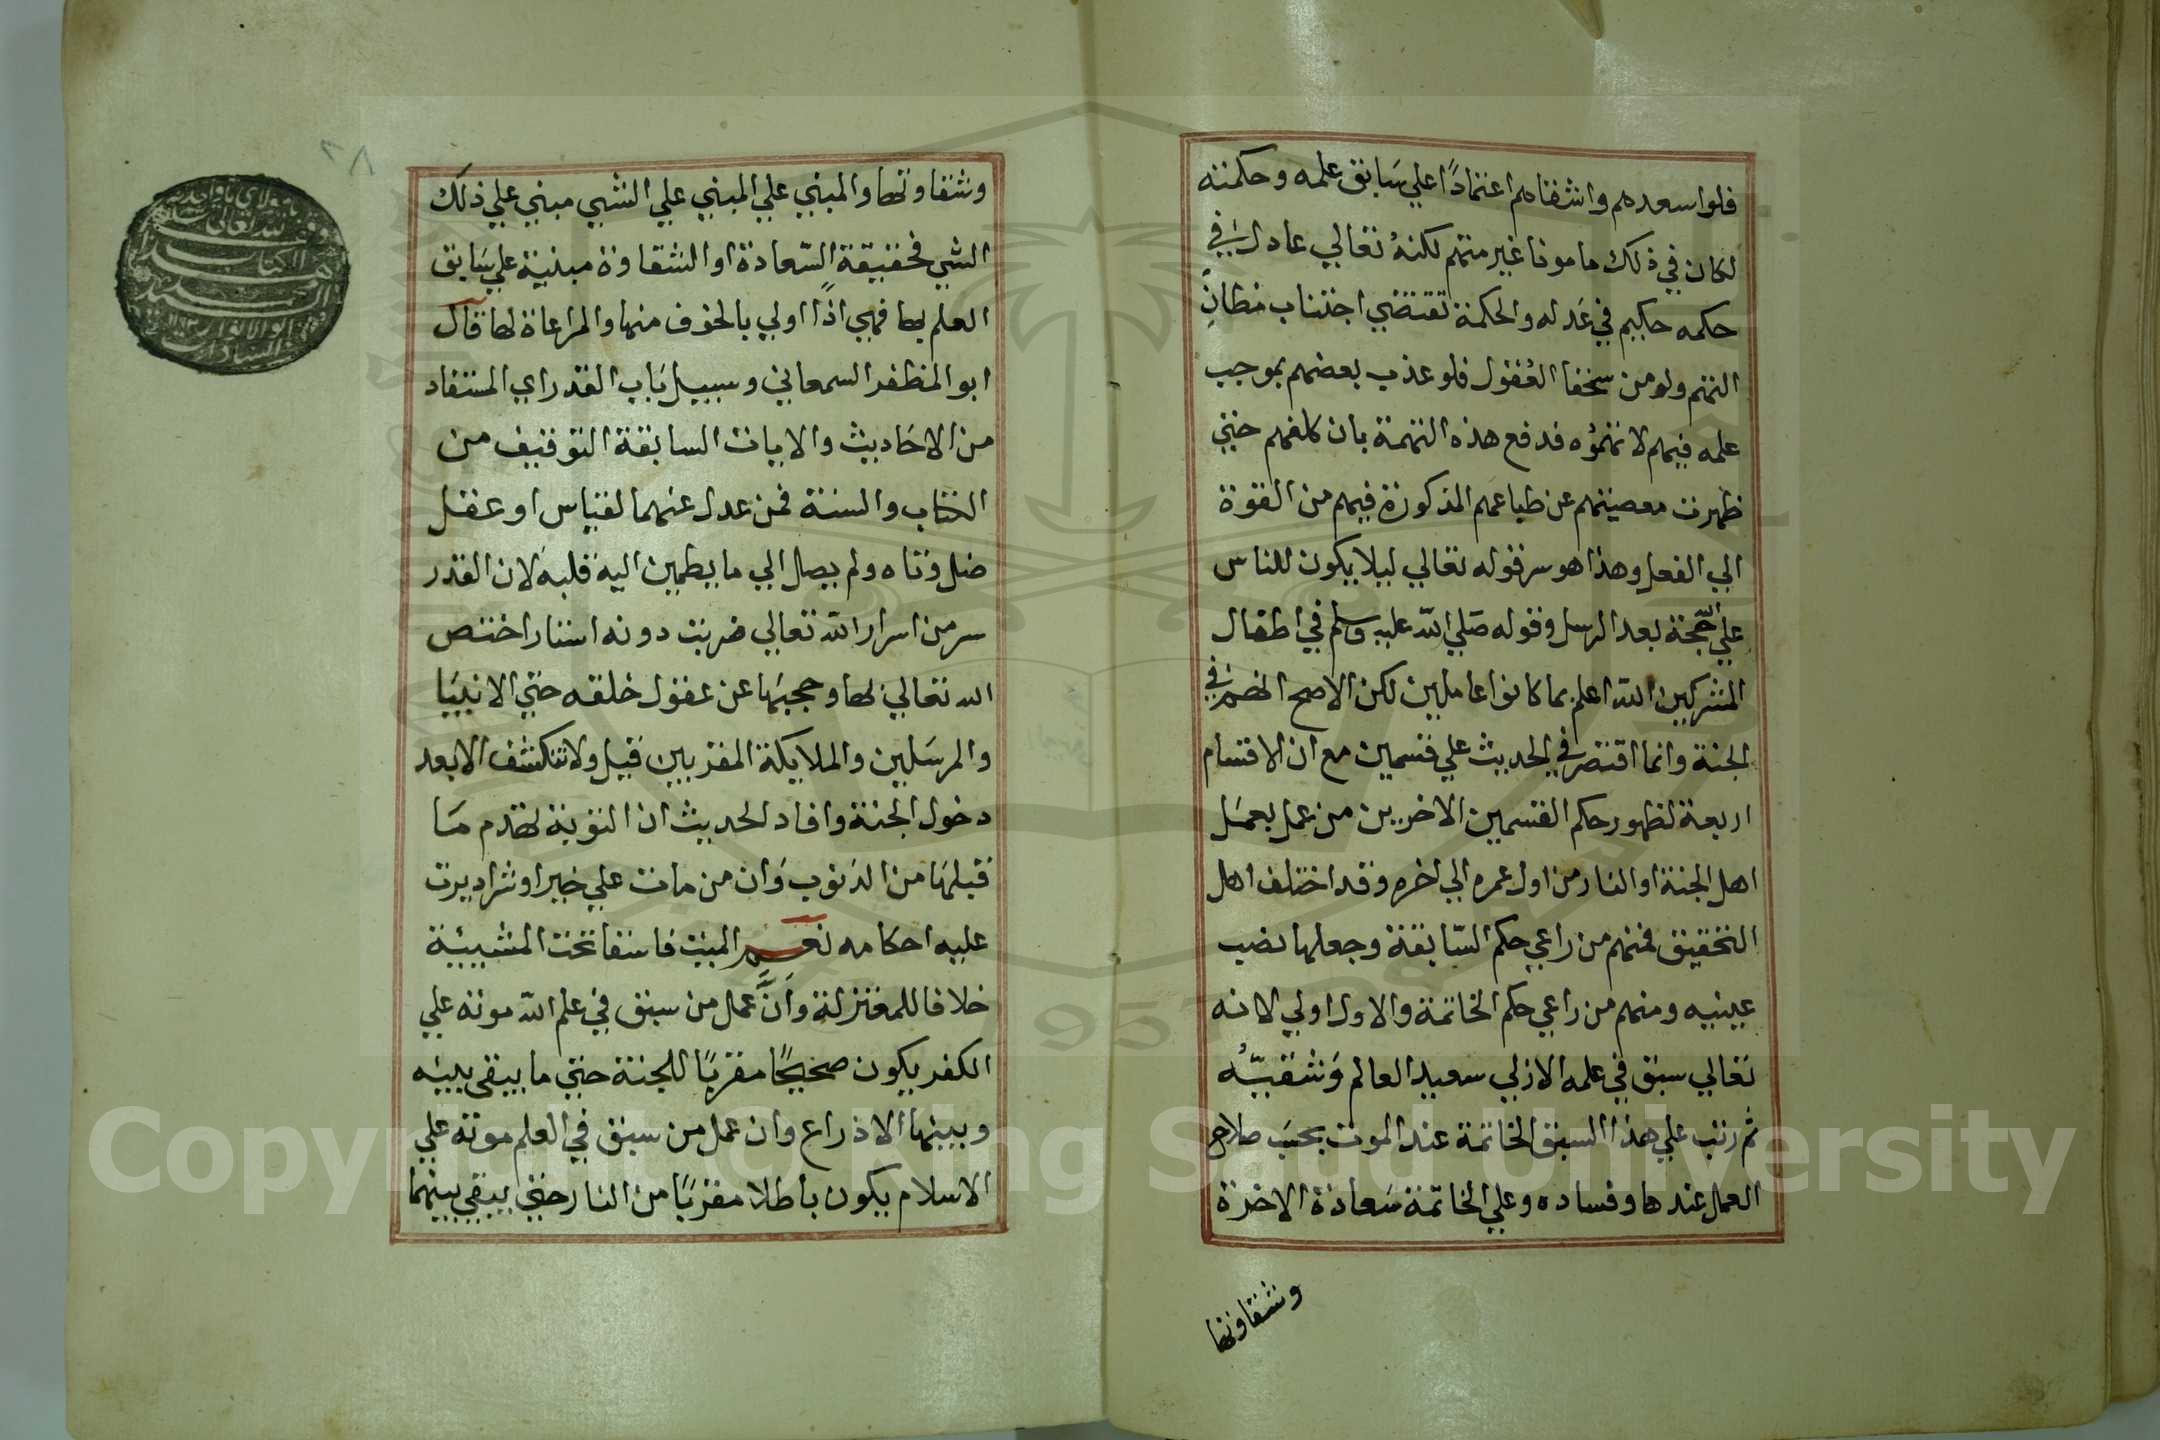 فلو اسعدهم واشقاهم اعتمادًا علي سَابق علمه وحكمته
لكان في ذلك مامونا غير متهم لكنهُ تعالي عادل في
حكمه حكيم في عَدله والحكمة تقتضي اجتناب مظانِّ
التهم ولو من سخفا العُقول فلو عذب بعضهم بموجب
علمه فيهم لاتهمُوه فدفع هذه التهمة بان كلفهم حتي
ظهرت معصيتهم عن طباعهم المذكورة فيهم من القوة
الي الفعل وهذا هو سر قوله تعالي ليلا يكون للناس
علي الله حجة بعد الرسل وقوله صَلي الله عليه وسلم في اطفال
المشركين الله اعلم بما كانوا عاملين لكن الاصح انهم في
الجنة وانما اقتصر في الحديث علي قسمين مع ان الاقسام
اربعة لظهور حكم القسمين الاخرين من عمل بعمَل
اهل الجنة او النار من اول عمره الي اخره وقد اختلف اهل
التحقيق فمنهم من راعي حكم السّابقة وجعلها نصب
عينيه ومنهم من راعي حكم الخاتمة والاول اولي لانه
تعَالي سبق في علمه الازلي سعيد العالم وَشقيّهُ
ثم رتب علي هذا السبق الخاتمة عند الموت بحسَب صلاح
العمل عندها وفساده وعلي الخاتمة سَعادة الاخرة
وشقاوتها
وشقاوتها والمبني علي المبني علي الشي مبني علي ذلك
الشي فحقيقة السّعادة او الشقاوة مبنية علي سَابق
العلم بها فهي اذًا اولي بالخوف منها والمراعاة لها قال
ابو المظفر السمعاني وسبيل بَاب القدر اي المستفاد
من الاحَاديث والايات السابقة التوقيف من
الكتاب والسنة فمن عدل عنهما لقياس او عقل
ضل وتاه ولم يصل الي ما يطمين اليه قلبه لان القدر
سر من اسرار الله تعالي ضربت دونه استار اختص
الله تعالي بها وحجبَها عن عقول خلقه حتي الانبيَا
والمرسَلين والملايكة المقربين قيل ولا تنكشف الا بعد
دخول الجنة وافاد الحديث ان التوبة تهدم مَا
قبلهَا من الذنوب وَان من مات علي خير او شر اديرت
عليه احكامه نعم الميت فاسقا تحت المشيية
خلافا للمعتزلة وَانَّ عمل من سبق في علم الله موته علي
الكفر يكون صحيحًا مقربًا للجنة حتي ما يبقي بينه
وبينها الا ذراع وان عمل من سبق في العلم موته علي
الاسلام يكون باطلا مقربًا من النار حتي يبقي بينهما
Copyright © King Saud University